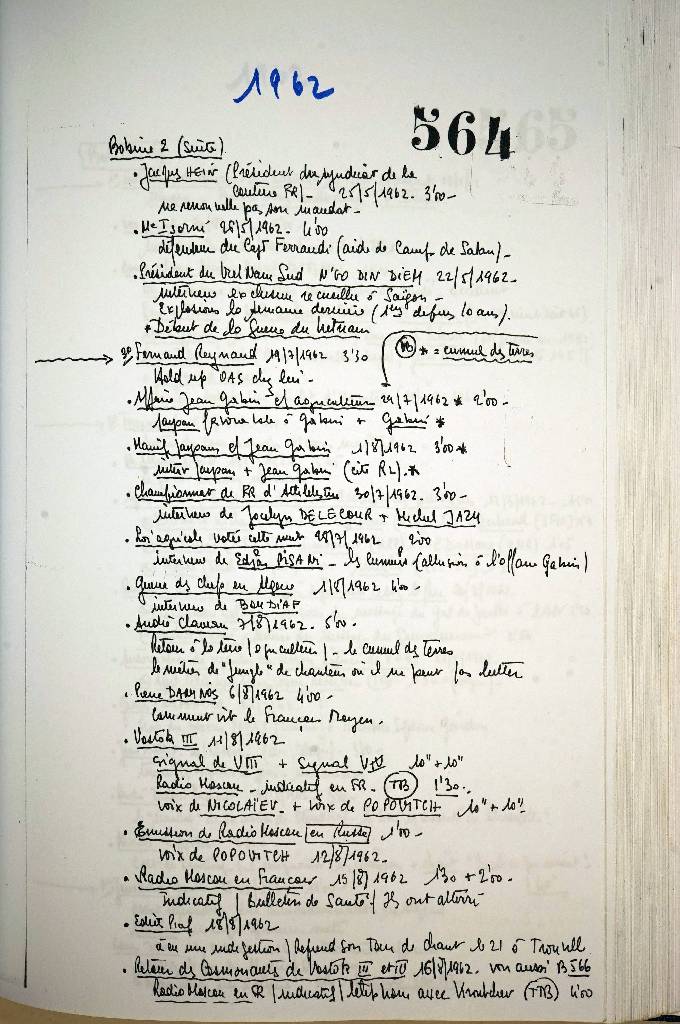 1962
564
Bobine 2 (suite)
• Jacques HEIM (Président du syndicat de la
couture FR) - 25/5/1962 - 3'00 -
ne renouvelle pas son mandat -
• Me Isorni 28/5/1962 - 4'00
défenseur du Capt Ferrandi (aide de Camp de Salan) -
• Président du Viet Nam Sud N'GO DIN DIEM 22/5/1962 -
interview exclusive recueillie à Saïgon -
Explosions la semaine dernière (1ères depuis 10 ans).
* Début de la Guerre du Vietnam
Fernand Raynaud 19/7/1962 3'30
NB * = cumul des terres
Hold up OAS chez lui -
• Affaire Jean Gabin et agriculteurs 29/7/1962 * 2'00 -
paysan favorable à Gabin + Gabin *
• Manif paysans et Jean Gabin 1/8/1962 3'00 *
inter paysan + Jean Gabin (cité RL). *
• Championnat de FR d'Athlétisme 30/7/1962 - 3'00 -
interview de Jocelyn DELECOUR + Michel JAZY
• Loi agricole votée cette nuit 28/7/1962 2'00
interview de Edgar PISANI - les cumuls (allusion à l'affaire Gabin)
• Guerre des chefs en Algérie 1/8/1962 4'00 -
interview de BOUDIAF
• André Claveau 7/8/1962 - 5'00 -
Retour à la terre (agriculteur) - le cumul des terres
le métier de "jungle" de chanteur où il ne peut pas lutter
• Pierre DANINOS 6/8/1962 4'00 -
Comment vit le Français Moyen.
• Vostok III 11/8/1962
Signal de VIII + Signal VIV 10" + 10"
Radio Moscou - indicatif en FR - (TB) 1'30 -
voix de NICOLAÏEV - + voix de POPOVITCH 10" + 10"
• Emission de Radio Moscou en Russe 1'00 -
voix de POPOVITCH 12/8/1962 -
• Radio Moscou en Français 15/8/1962 1'30 + 2'00 -
indicatif / Bulletin de Santé / Ils ont atterri
• Edith Piaf 18/8/1962
a eu une indigestion / Reprend son Tour de chant le 21 à Trouville
• Retour des Cosmonautes de Vostok III et IV 16/8/1962 - voir aussi B 566
Radio Moscou en FR / indicatif / téléphone avec Kroutchev (TTB) 4'00